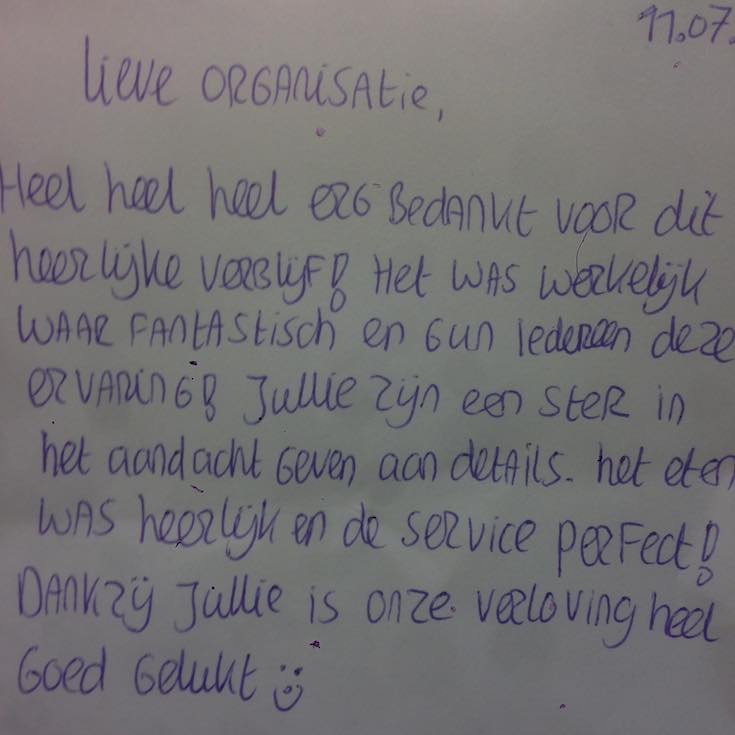 11.07.
Lieve ORGANISAtie,
Heel heel heel ERG BedANkt VOOR dit
heerlijke VERBLIJF! Het WAS werkelijk
WAAR FANtAStisch en Gun Iedereen deze
ERVARING! Jullie zijn een SteR in
het aandacht Geven aan detAils. het eten
WAS heerlijk en de service PERFect!
DANKzij Jullie is onze verloving heel
Goed Gelukt :)